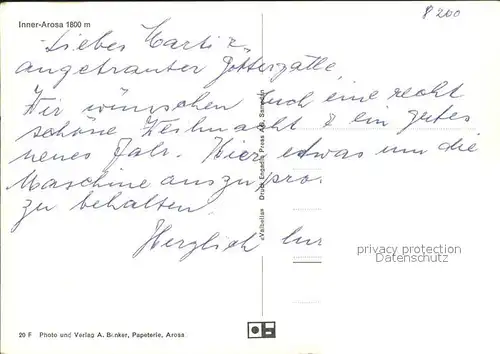 Inner-Arosa 1800 m
8200
Liebes Carti &
angetrauter Göttergatte,
Wir wünschen Euch eine recht
schöne Weihnacht & ein gutes
neues Jahr. Hier etwas um die
Maschine auszupro.
zu behalten.
Herzlich Eur
«Valbella» Druck Engadin Press AG, Samedan
privacy protection
20 F Photo und Verlag A. Benker, Papeterie, Arosa